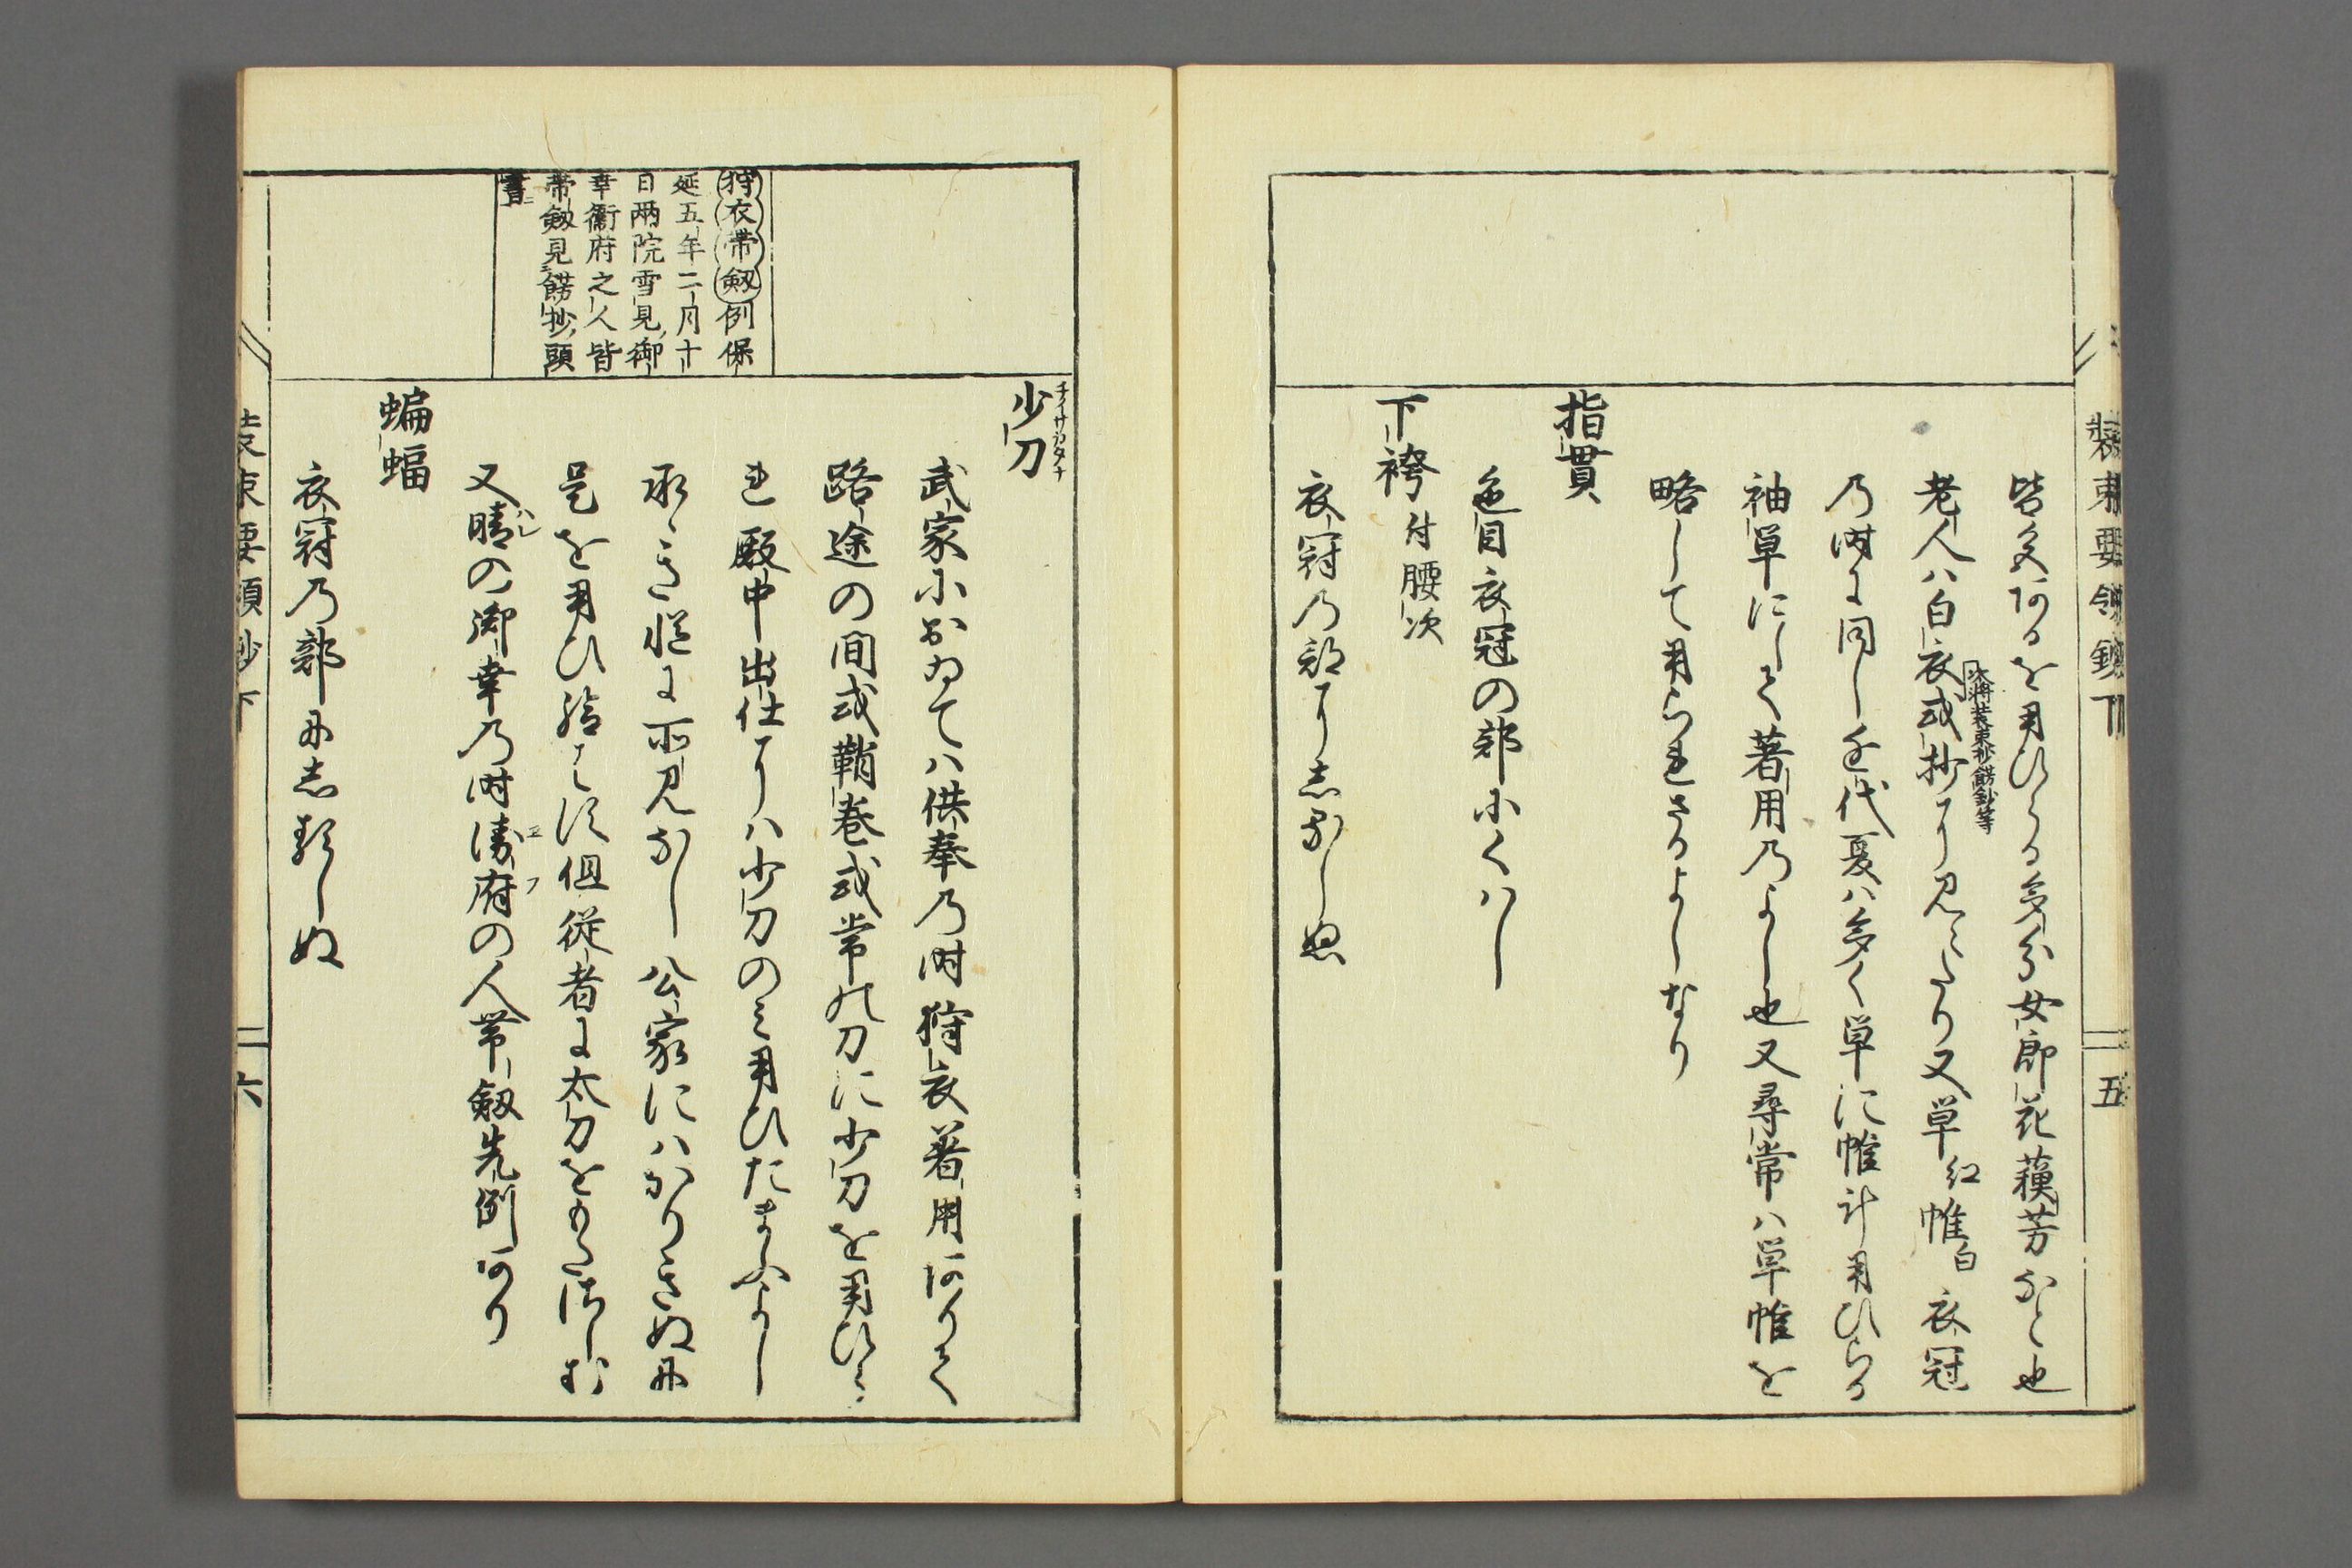 装束要領鈔下
五
皆文あるを用ひらる多分女郎花蘓芳なと也
老人ハ白衣或抄に見えたり又単紅帷白衣冠
次将装束抄餝鈔等
乃時に同し近代夏ハ多く単に帷計用ひらる
袖単にして著用乃よし也又尋常ハ単帷を
略して用られさるよしなり
指貫
色目衣冠の部小くハし
下袴付腰次
衣冠乃部にしるしぬ
少刀
チイサカタナ
武家におゐてハ供奉乃時狩衣着用ありて
路途の間或鞘巻或常の刀に少刀を用ひら
れ殿中出仕にハ少刀のみ用ひたまふよし
公家にハかりきぬに
是を用ひ給はす但従者に太刀をもたせしむ
又晴の御幸乃時衛府の人帯劔先例あり
ハレ
ヱフ
蝙蝠
衣冠乃部にしるしぬ
狩衣帯劔例保
延五年二月十
日両院雪見御
幸衞府之人皆
帯劔見餝抄頭
書
装束要領抄下
二六